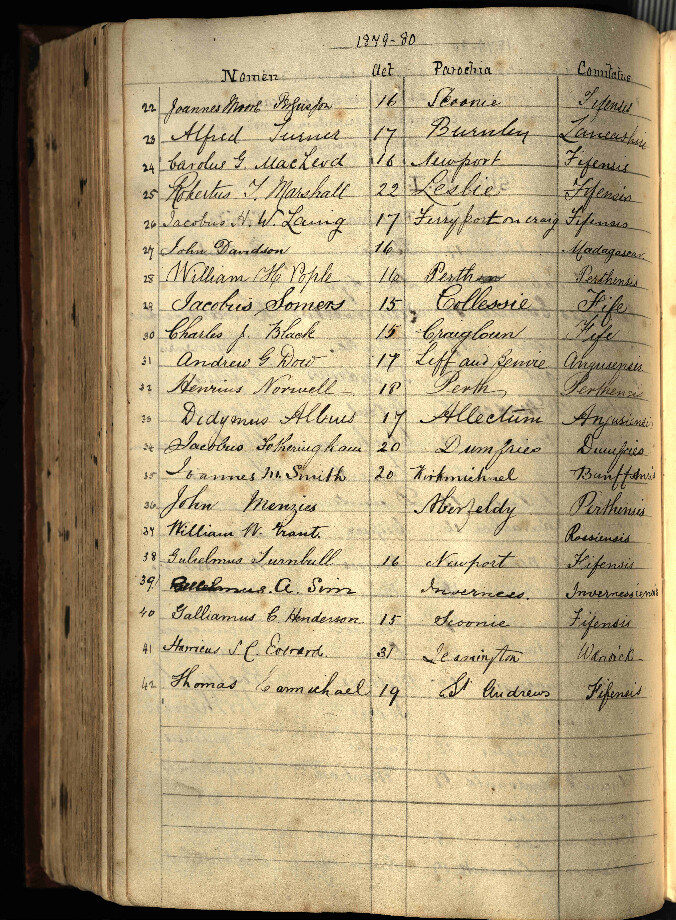 1879-80
Nomen Aet Parochia Comitatus
22 Joannes Moore Ferguson 16 Scoonie Fifensis
23 Alfred Turner 17 Burnley Lancashire
24 Carolus G. MacLeod 16 Newport Fifensis
25 Robertus T. Marshall 22 Leslie Fifensis
26 Jacobus H. W. Laing 17 Ferryport on craig Fifensis
27 John Davidson 16 Madagascar
28 William H. Pople 16 Perth Perthensis
29 Jacobus Somers 15 Collessie Fife
30 Charles J. Black 15 Fife
31 Andrew G. Dow 17 Liff and Benvie Angusensis
32 Henricus Norwell 18 Perth Perthensis
33 Didymus Albus 17 Allectum Angusiensis
34 Jacobus Fotheringham 20 Dumfries Dumfries
35 Ioannes M. Smith 20 Kirkmichael Banffensis
36 John Menzies Aberfeldy Perthensis
37 William W. Grant Rossiensis
38 Gulielmus Turnbull 16 Newport Fifensis
39 A. Sim Inverness. Invernessiensis
40 Galliamus C. Henderson 15 Scoonie Fifensis
41 Henricus S. C. Everard 31 Leamington Warwick
42 Thomas Carmichael 19 St Andrews Fifensis